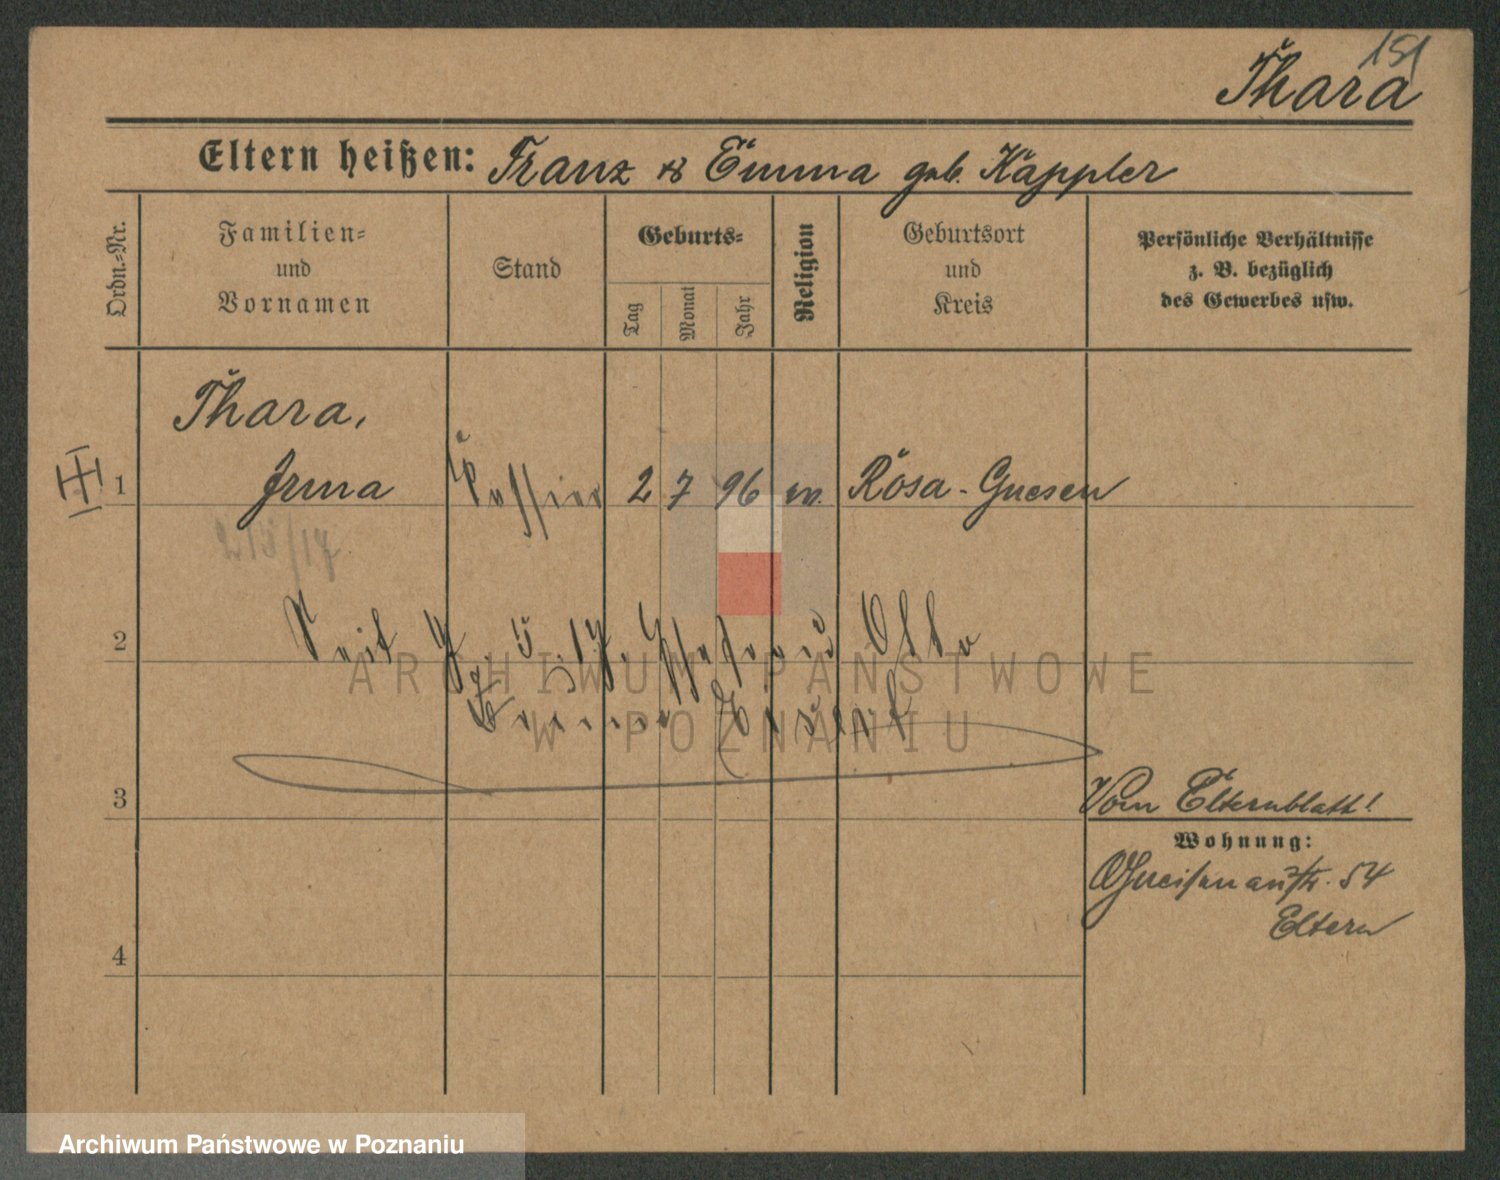 151
Thara
Eltern heißen: Franz & Emma geb. Käppler
Ordn.-Nr.
Familien- und Vornamen
Stand
Geburts-
Tag
Monat
Jahr
Religion
Geburtsort und Kreis
Persönliche Verhältnisse z. B. bezüglich des Gewerbes usw.
Thara,
1 Irma 2 7 96 Rosa-Gnesen
2 Seit 7. 5. 17. Otto
3
Vom Elternblatt!
Wohnung:
Gneisenaustr. 54
Eltern
4
ARCHIWUM PAŃSTWOWE
W POZNANIU
Archiwum Państwowe w Poznaniu